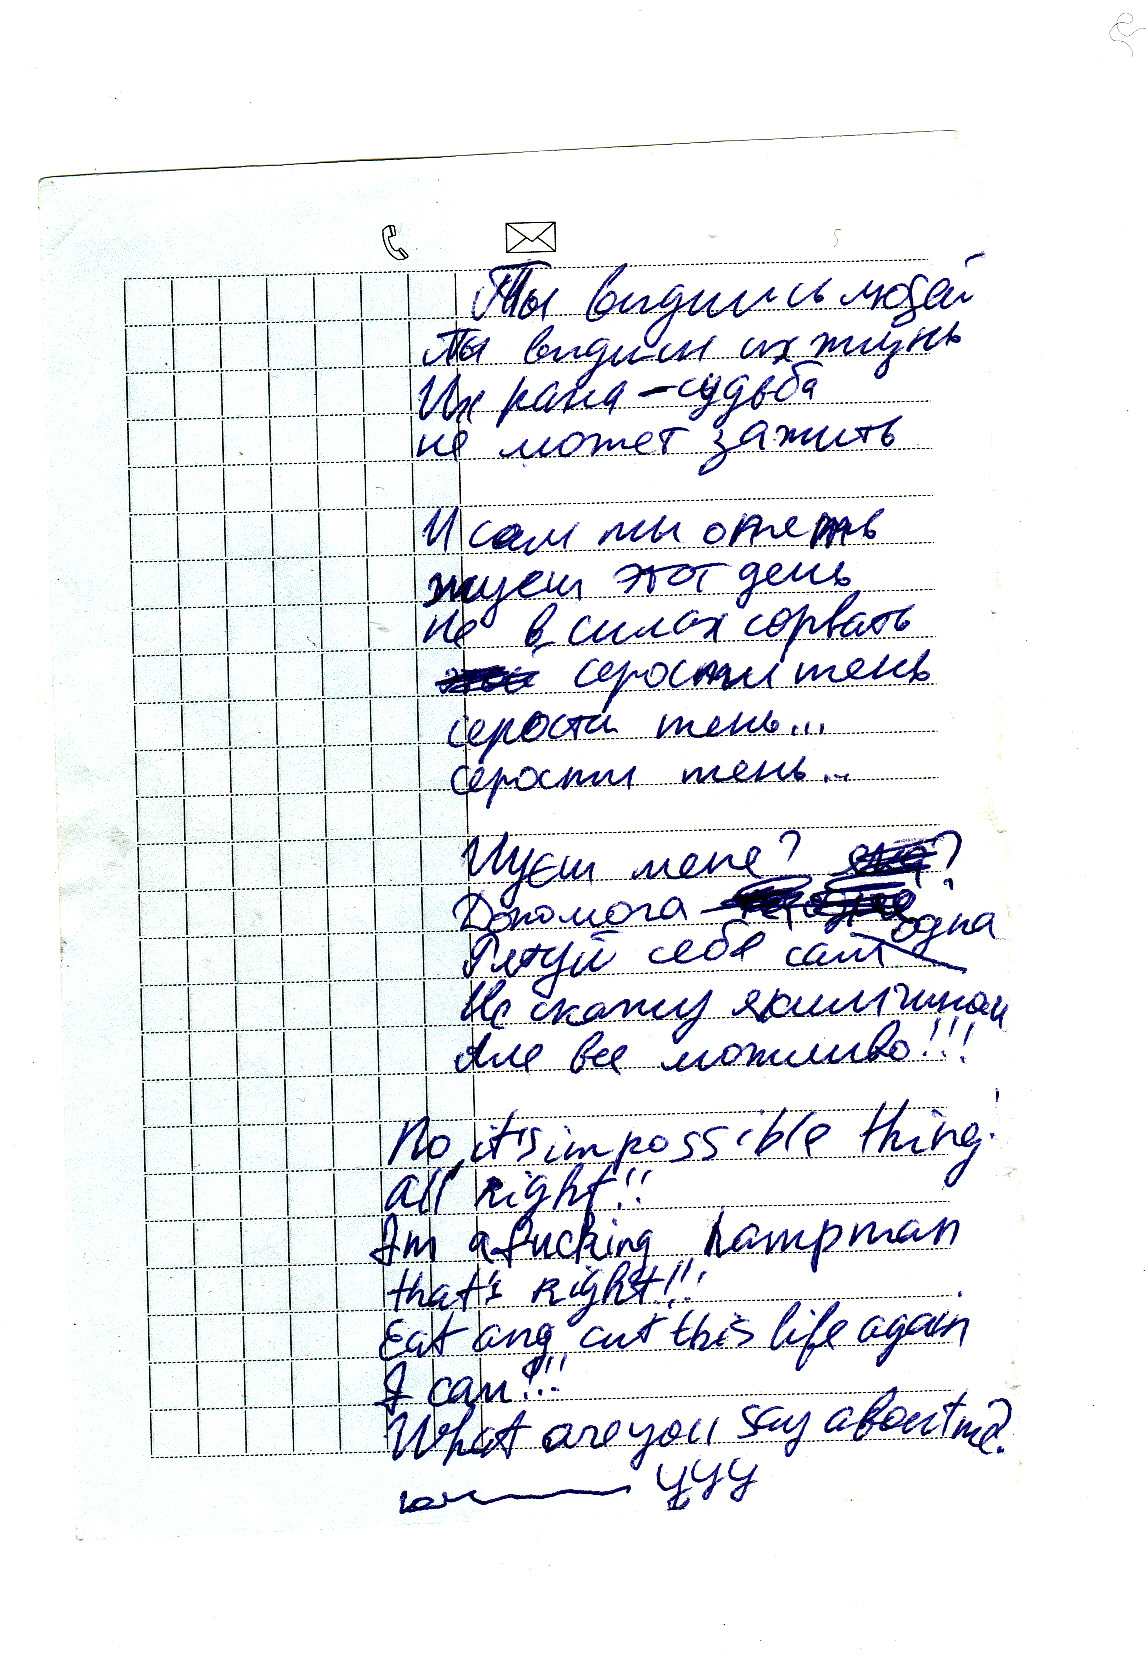 Ты видишь людей
Ты видиш их жизнь
Их рана – судьба
не может зажить
И сам ты опять
ждеш этот день
не в силах сорвать
серости тень
серости тень...
серости тень...
Чуєш мене? ?
Допомога одна
Рятуй себя сам
Не скажу яким чином
Але все можливо!!!
No, it's impossible thing!
all right!!
I'm a fucking
that's right!!!
Eat ang cut this life again
I can!!!
What are you say about me?
ууу